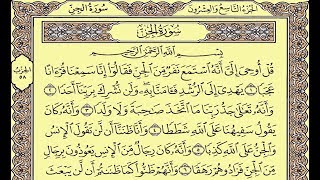 الجزء التاسع والعشرون
سورة الجن
سورة الجن
بسم الله الرحمن الرحيم
قل أوحي إلي أنه استمع نفر من الجن فقالوا إنا سمعنا قرءانا
عجبا ١ يهدي إلى الرشد فءامنا به ولن نشرك بربنا أحدا ٢
وأنه تعلى جد ربنا ما اتخذ صحبة ولا ولدا ٣ وأنه كان
يقول سفيهنا على الله شططا ٤ وأنا ظننا أن لن تقول الإنس
والجن على الله كذبا ٥ وأنه كان رجال من الإنس يعوذون برجال
من الجن فزادوهم رهقا ٦ وأنهم ظنوا كما ظننتم أن لن يبعث
الحزب
٥٨